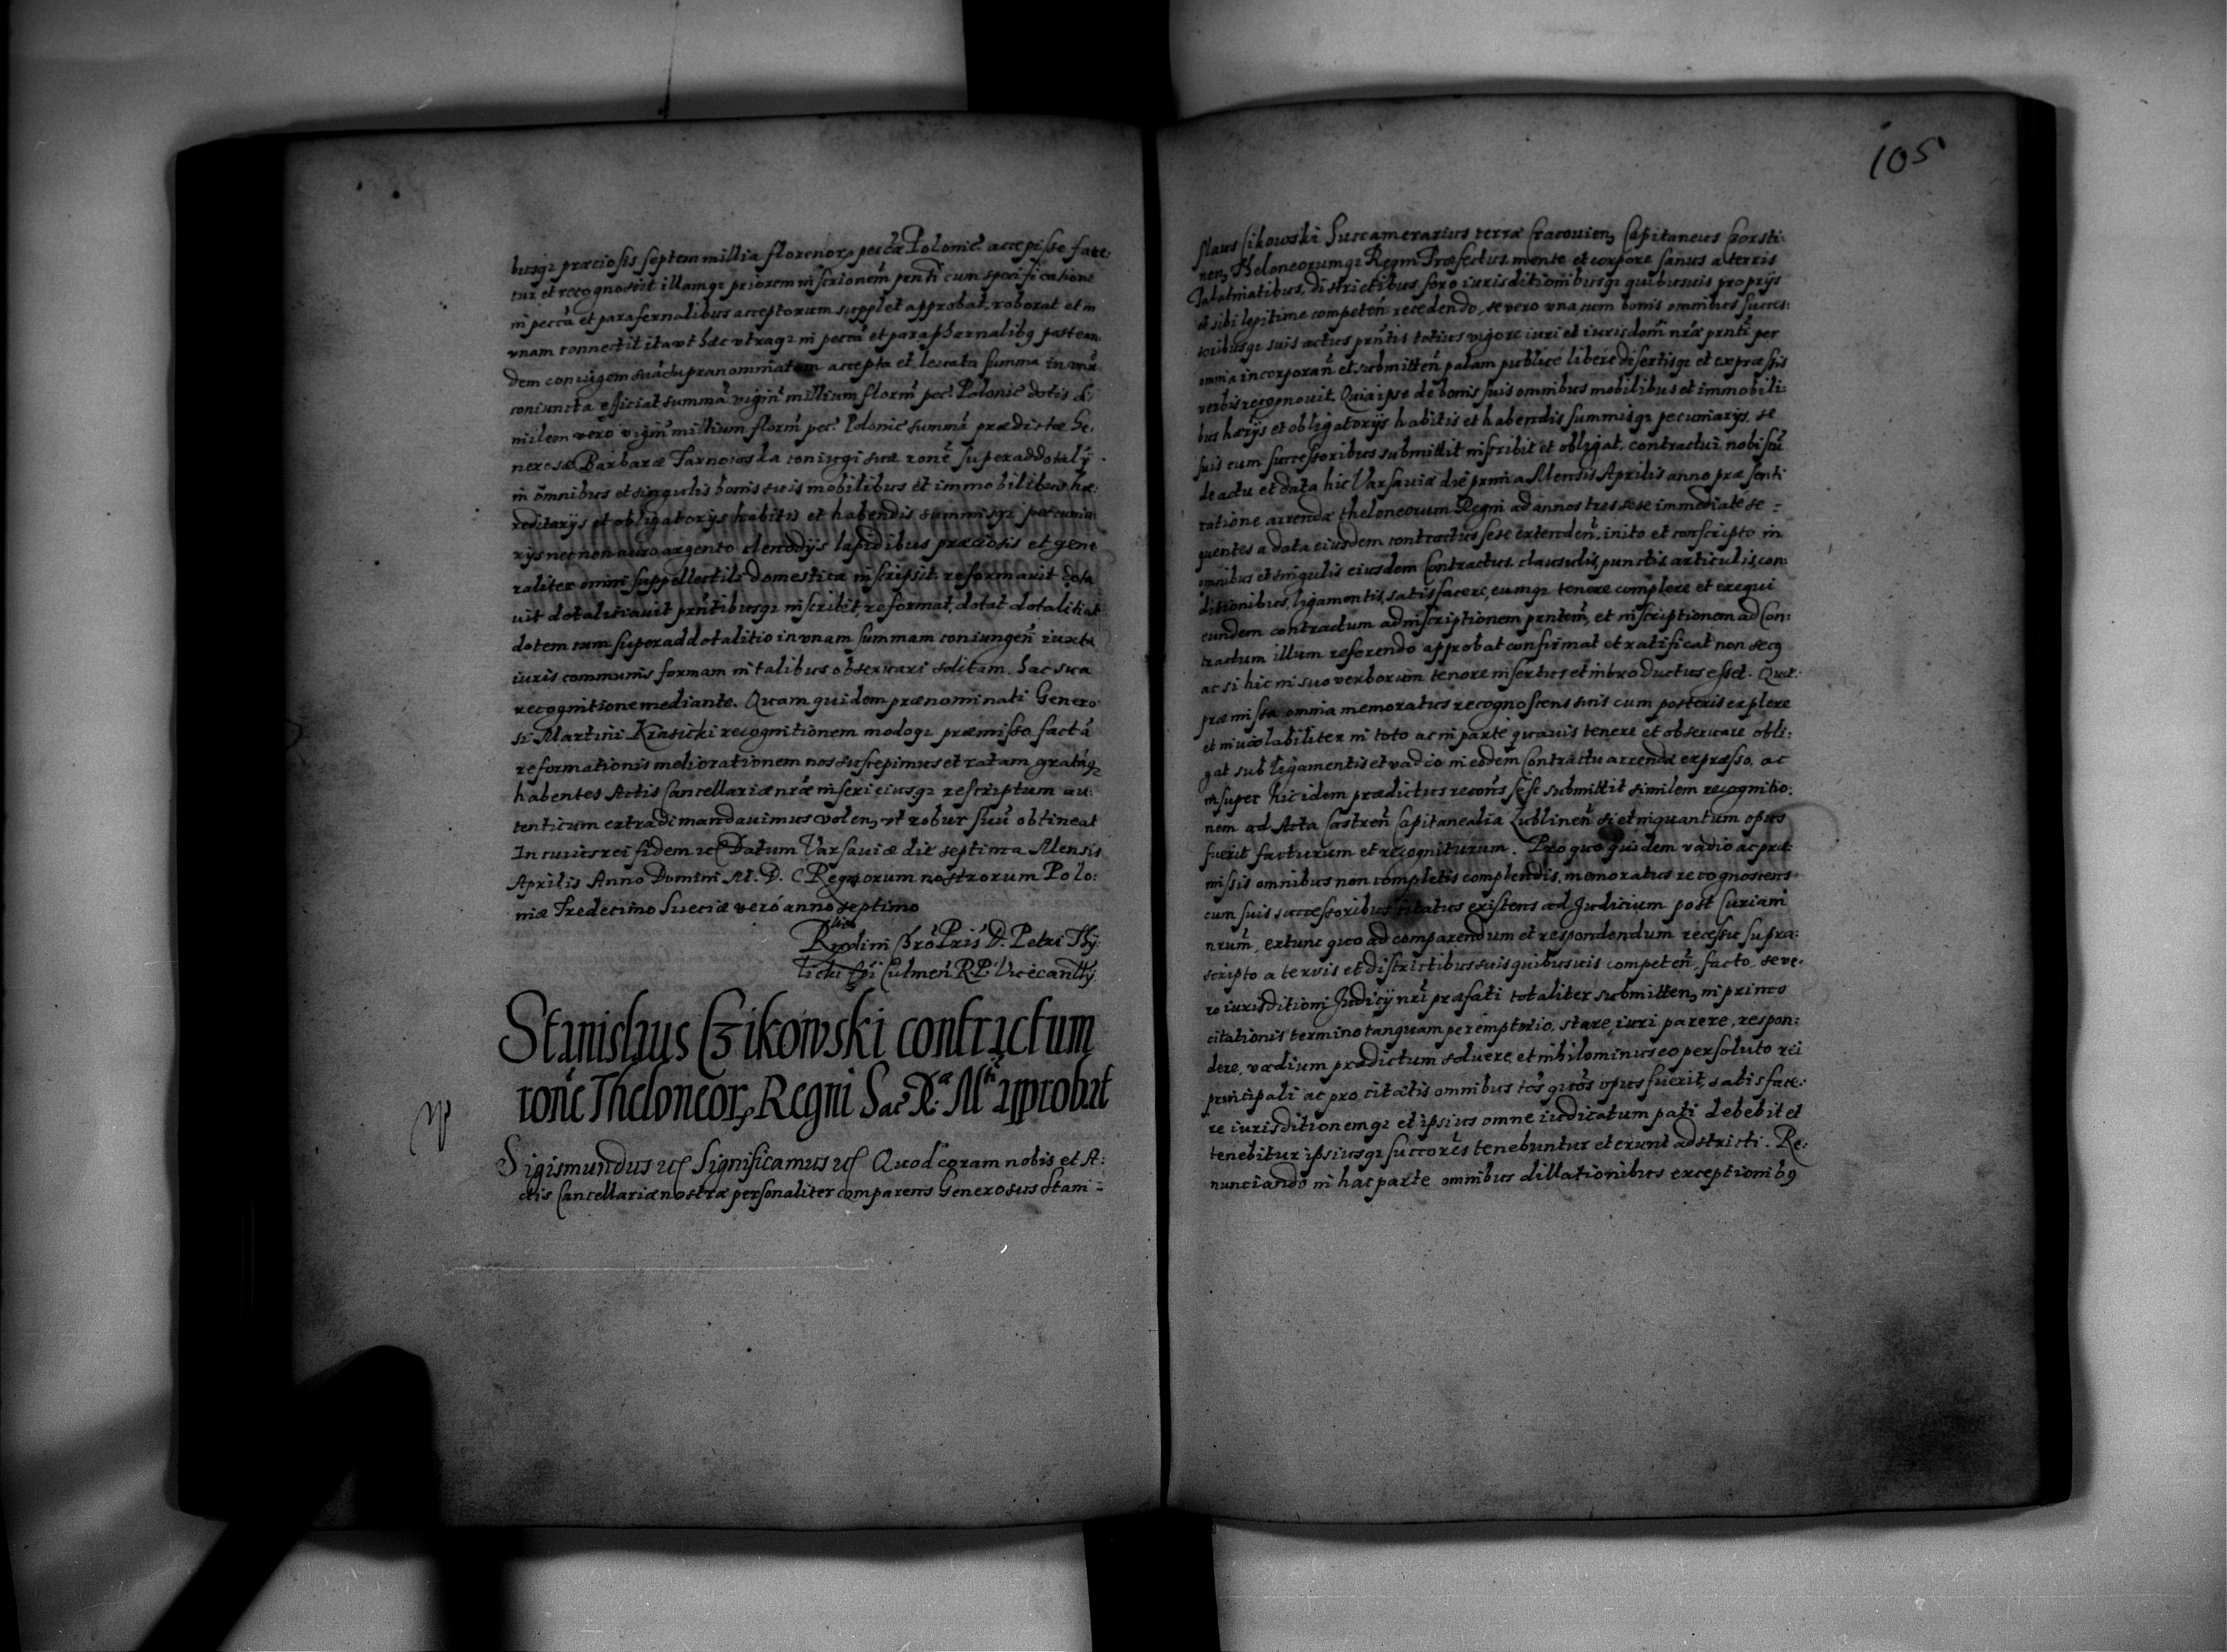 busqꝫ præciosis septem millia florenorꝝ peccæ Polonic̃ accepisse fate:
tur et recognoscit illamqꝫ priorem inscrionem̃ prnti cum specificatione
in peccã et parafernalibus acceptorum supplet approbat, roborat et in
vnam connectit ita vt hæc vtraqꝫ in peccã et parapharnalibꝯ per ean
dem coniugem suã prænominatam accepta et leuata summa in vnũ
coniuncta efficiat summã vigin̂ millium florm̃ pec: Polonic̃ dotis Si
milem vero vigin̂ millium florm̃ pec: Polonic̃ summã prædictæ Ge:
nerosæ Barbaræ Tarnowska coniugi suæ rone superaddotalÿ
in omnibus et singulis bonis suis mobilibus et immobilibus hæ:
reditarÿs et obligatorÿs habitis et habendis summisqꝫ pecunia:
rÿs necnon auro argento clenodÿs lapidibus præciosis et gene
raliter omni suppellectili domestica inscripsit reformauit dota
uit dotalitiauit prñtibusqꝫ inscribit, reformat, dotat dotalitiat
dotem cum superaddotalitio in vnam summam coniungeñ iuxta
iuris communis formam in talibus obseruari solitam. hac sua
recognitione mediante. Quam quidem prænominati Genero
si Martini Krasicki recognitionem modoqꝫ præmisso factã
reformationis meliorationem nos suscepimus et ratam gratãqꝫ
habentes Actis Cancellariæ nræ inseri eiusqꝫ rescriptum au:
tenticum extradi mandauimus volenꝫ vt robur suũ obtineat
In cuius rei fidem ꝛc Datum Varsauiæ die septima Mensis
Aprilis Anno Domini M. D. C Regnorum nostrorum Polo:
niæ Tredecimo Sueciæ veró anno septimo
Petri Thÿ:
licki Epĩ Culmeñ R. P. Vicecanllÿ
Stanislaus Czikowski contractum
ronẽ Theloneorꝝ Regni Sac Rᵃ Mᵗⁱˢ approbat
Sigismundus ꝛc Significamus ꝛc Quod coram nobis et A:
ctis Cancellariæ nostræ personaliter comparens Generosus Stani=
105
slaus Cikowski Succamerarius terræ Cracouienꝫ Capitaneus Czorsti:
nenꝫ Theloneorumqꝫ Regni Præfectus mente et corpore sanus a terris
Palatinatibus, districtibus foro iurisditionibusqꝫ quibusuis proprÿs
et sibi legitime competeñ recedendo, se vero vna cum bonis omnibus succes:
soribusqꝫ suis actus prñtis totius vigore iuri et iurisdom̃ nræ prnti per
omnia incorporañ et submitteñ palam publicé liberé disertisqꝫ et expressis
verbis recognouit. Quia ipse de bonis suis omnibus mobilibus et immobili:
bus hærÿs et obligatorÿs habitis et habendis summisqꝫ pecuniarÿs, se
suis cum successoribus submittit inscribit et obligat, contractui nobiscũ
de actu et data hic Varsauiæ die prima Mensis Aprilis anno præsenti
ratione arrendæ theloneorum Regni ad annos tres sese immediaté se=
quentes a data eiusdem contractus sese extendeñ, inito et conscripto in
omnibus et singulis eiusdem Contractus clausulis, punctis, articulis, con:
ditionibus, ligamentis, satisfacere, eumqꝫ tenere complere et exequi
eundem contractum ad inscriptionem prntem̃, et inscriptionem ad Con:
tractum illum referendo approbat confirmat et ratificat non secꝯ
ac si hic in suo verborum tenore insertus et introductus esset. Quæ:
præmissa omnia memoratus recognoscens suis cum posteris explere
et inuiolabiliter in toto ac in parte quauis tenere et obseruare obli:
gat sub ligamentis et vadio in eodem Contractu arrendæ expresso, ac
insuper hic idem prædictus recoñs sese submittit similem recognitio:
nem ad Acta Castreñ Capitanealia Lublineñ si et inquantum opus
fuerit facturum et recogniturum. Pro quo quidem vadio ac præ
missis omnibus non completis complendis, memoratus recognoscens
cum suis successoribus citatus existens ad Judicium post Curiam
nrum̃, extunc quo ad comparendum et respondendum recessu supra:
scripto a terris et districtibus suis quibusuis competeñ, facto, se ve:
ro iurisditioni Judicÿ nri præfati totaliter submittenꝫ, in primo
citationis termino tanquam peremptorio, stare, iuri parere, respon:
dere, vadium prædictum soluere, et nihilominus eo persoluto rei
principali ac pro citatis omnibus tos̃ quos̃ opus fuerit, satisface:
re iurisditionemqꝫ et ipsius omne iudicatum pati debebit et
tenebitur ipsiusqꝫ succores̃ tenebuntur et erunt adstricti. Re:
nunciando in hac parte omnibus dillationibus exceptionibꝯ